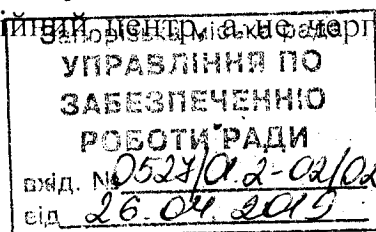 ійний центр, а не черг
Запорізька міська рада
УПРАВЛІННЯ ПО
ЗАБЕЗПЕЧЕННЮ
РОБОТИ РАДИ
вхід. № 0527/01.2-02/02
від 26.04.2019